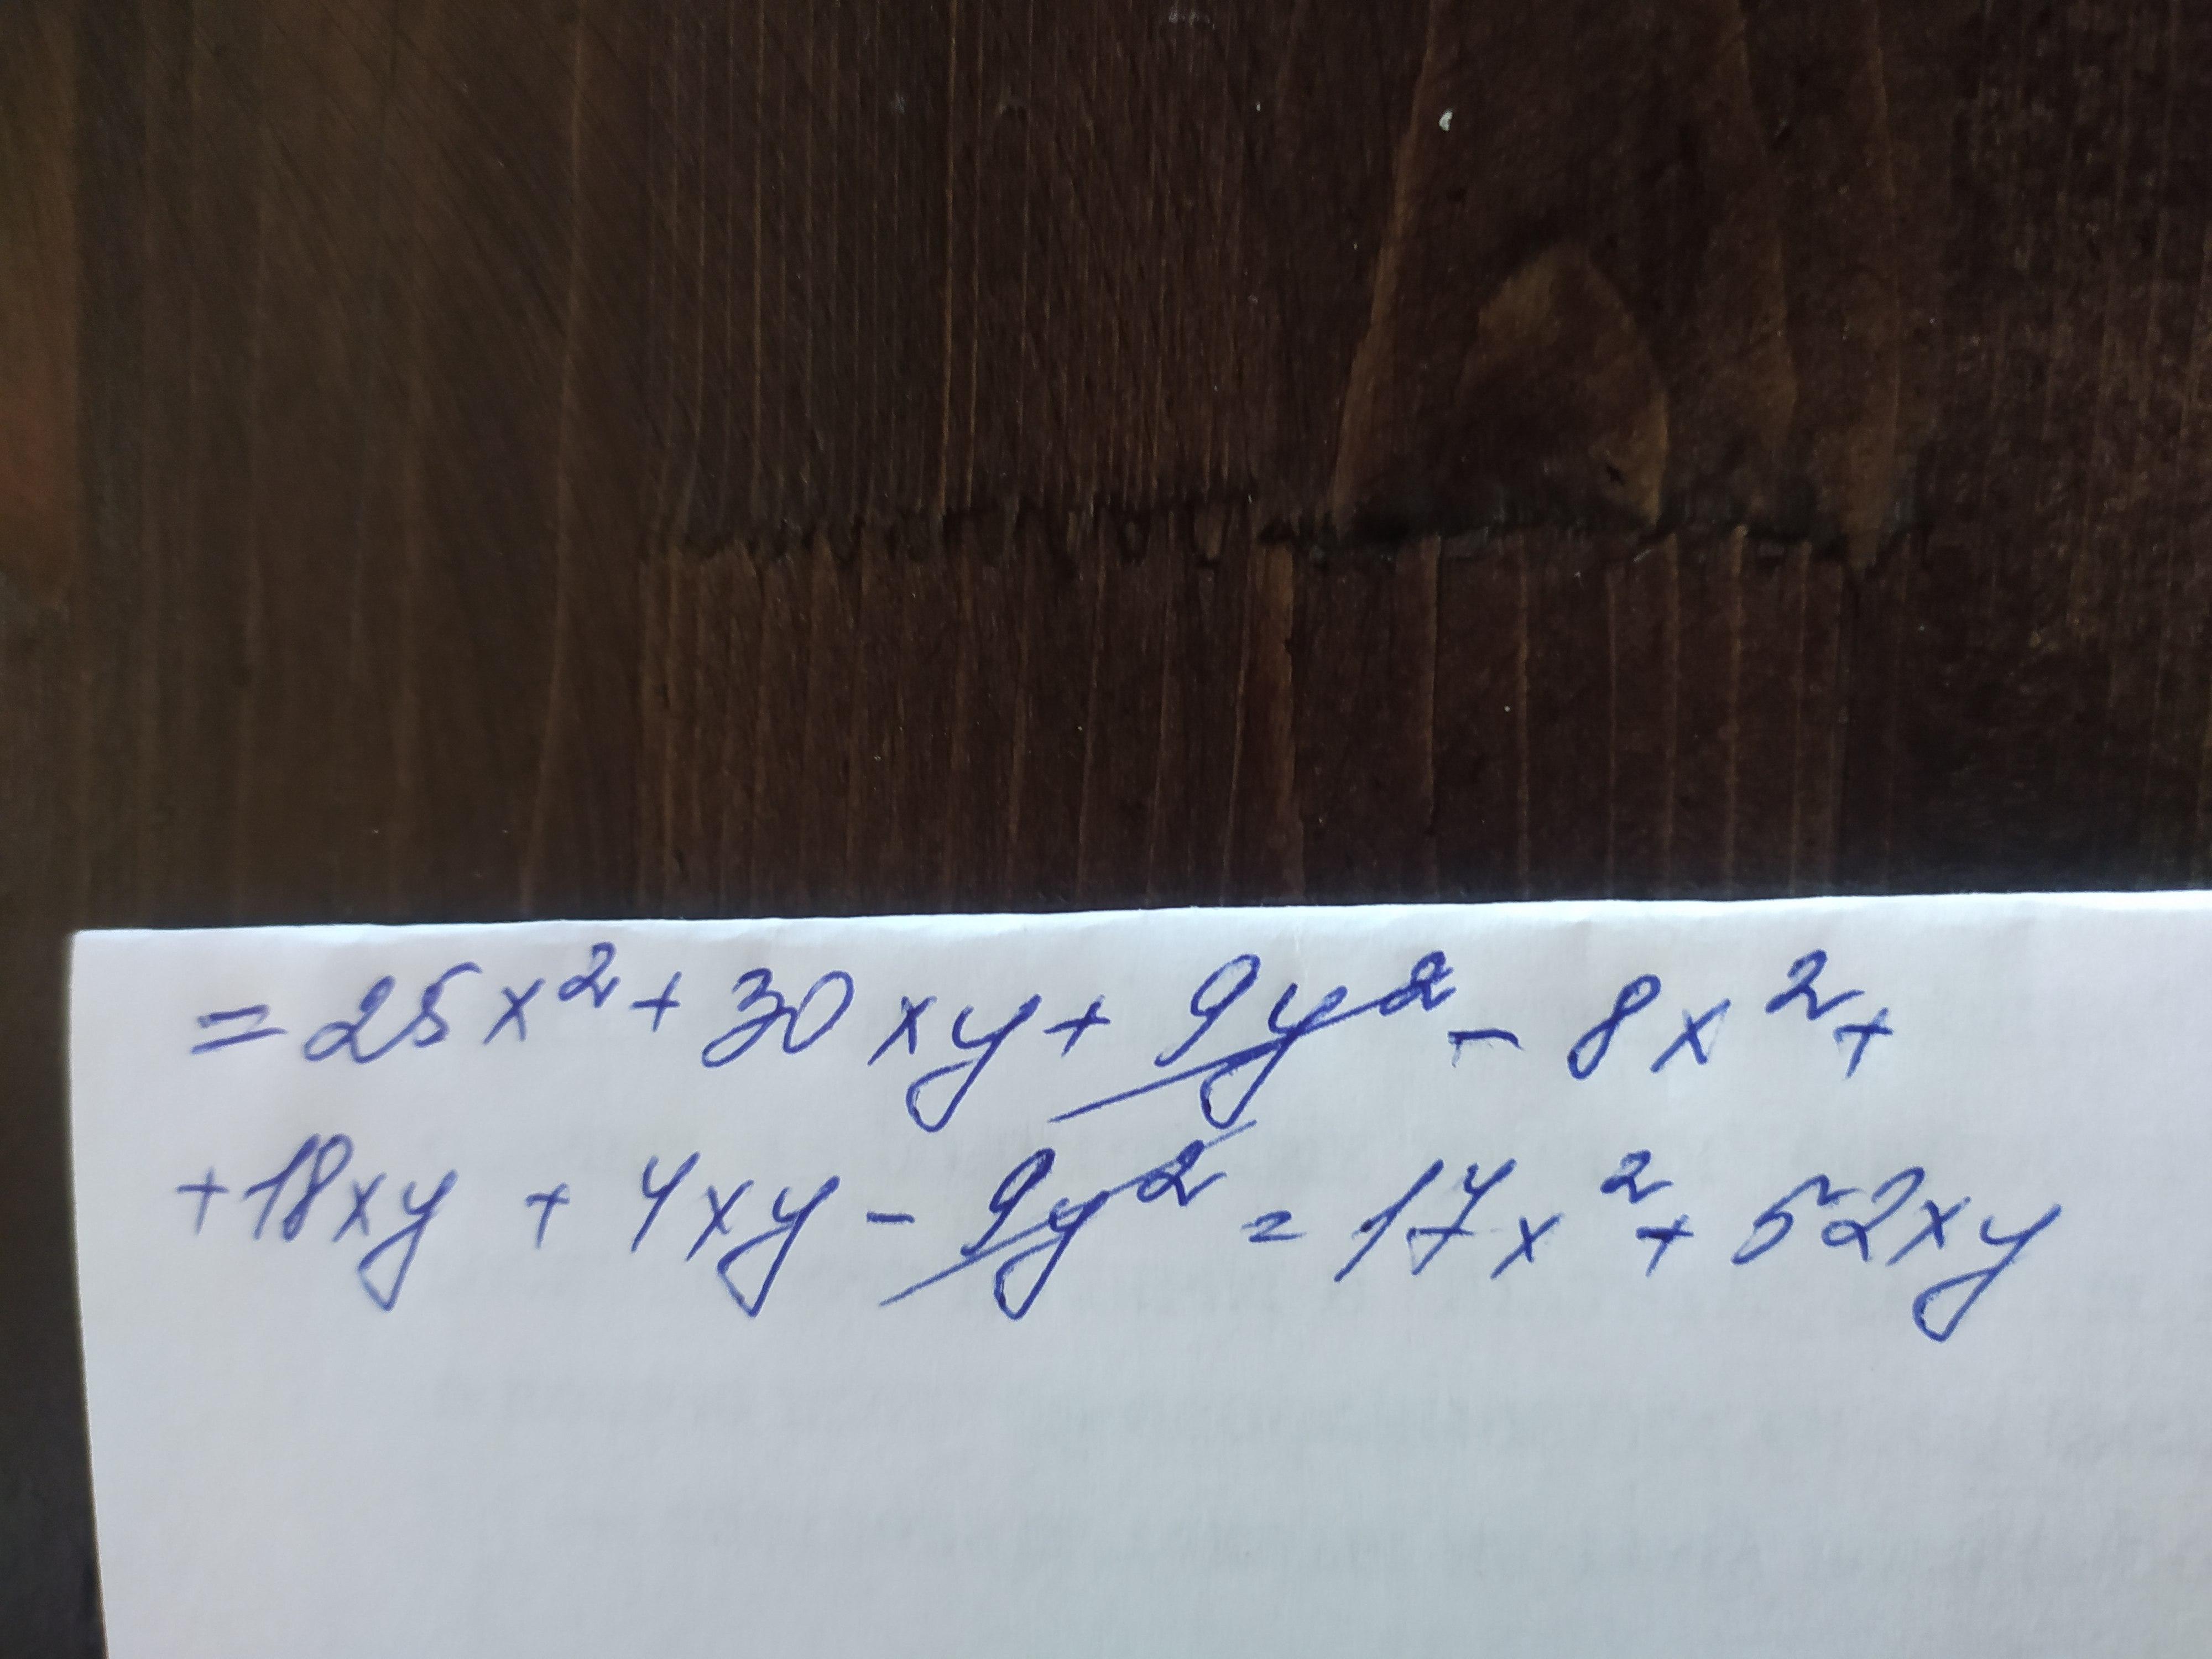 = 25x² + 30xy + 9y² - 8x² +
+ 18xy + 4xy - 9y² = 17x² + 52xy